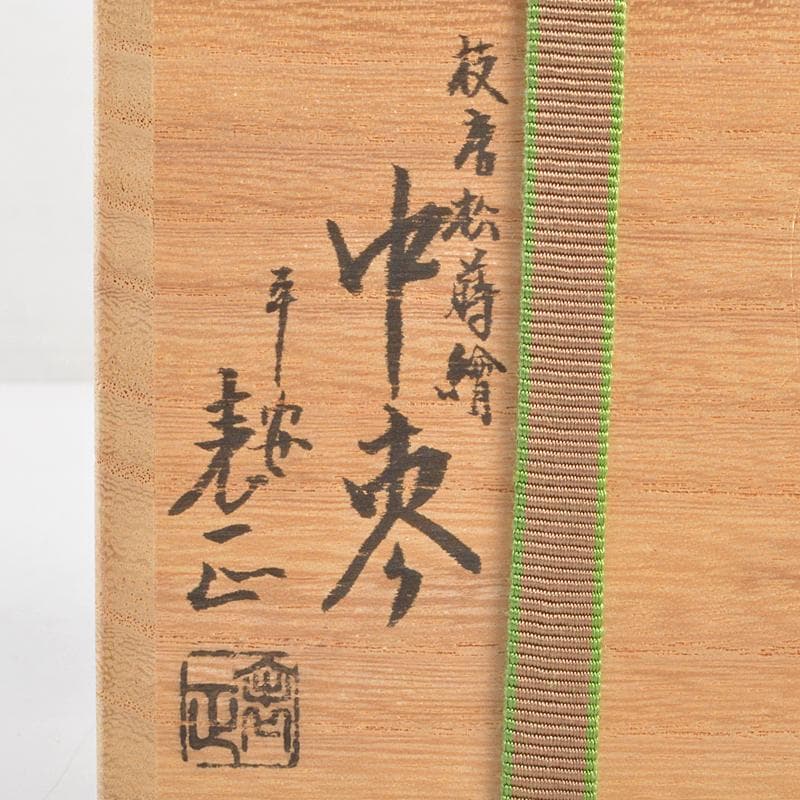 枝唐松蒔繪
中棗
平安
表正